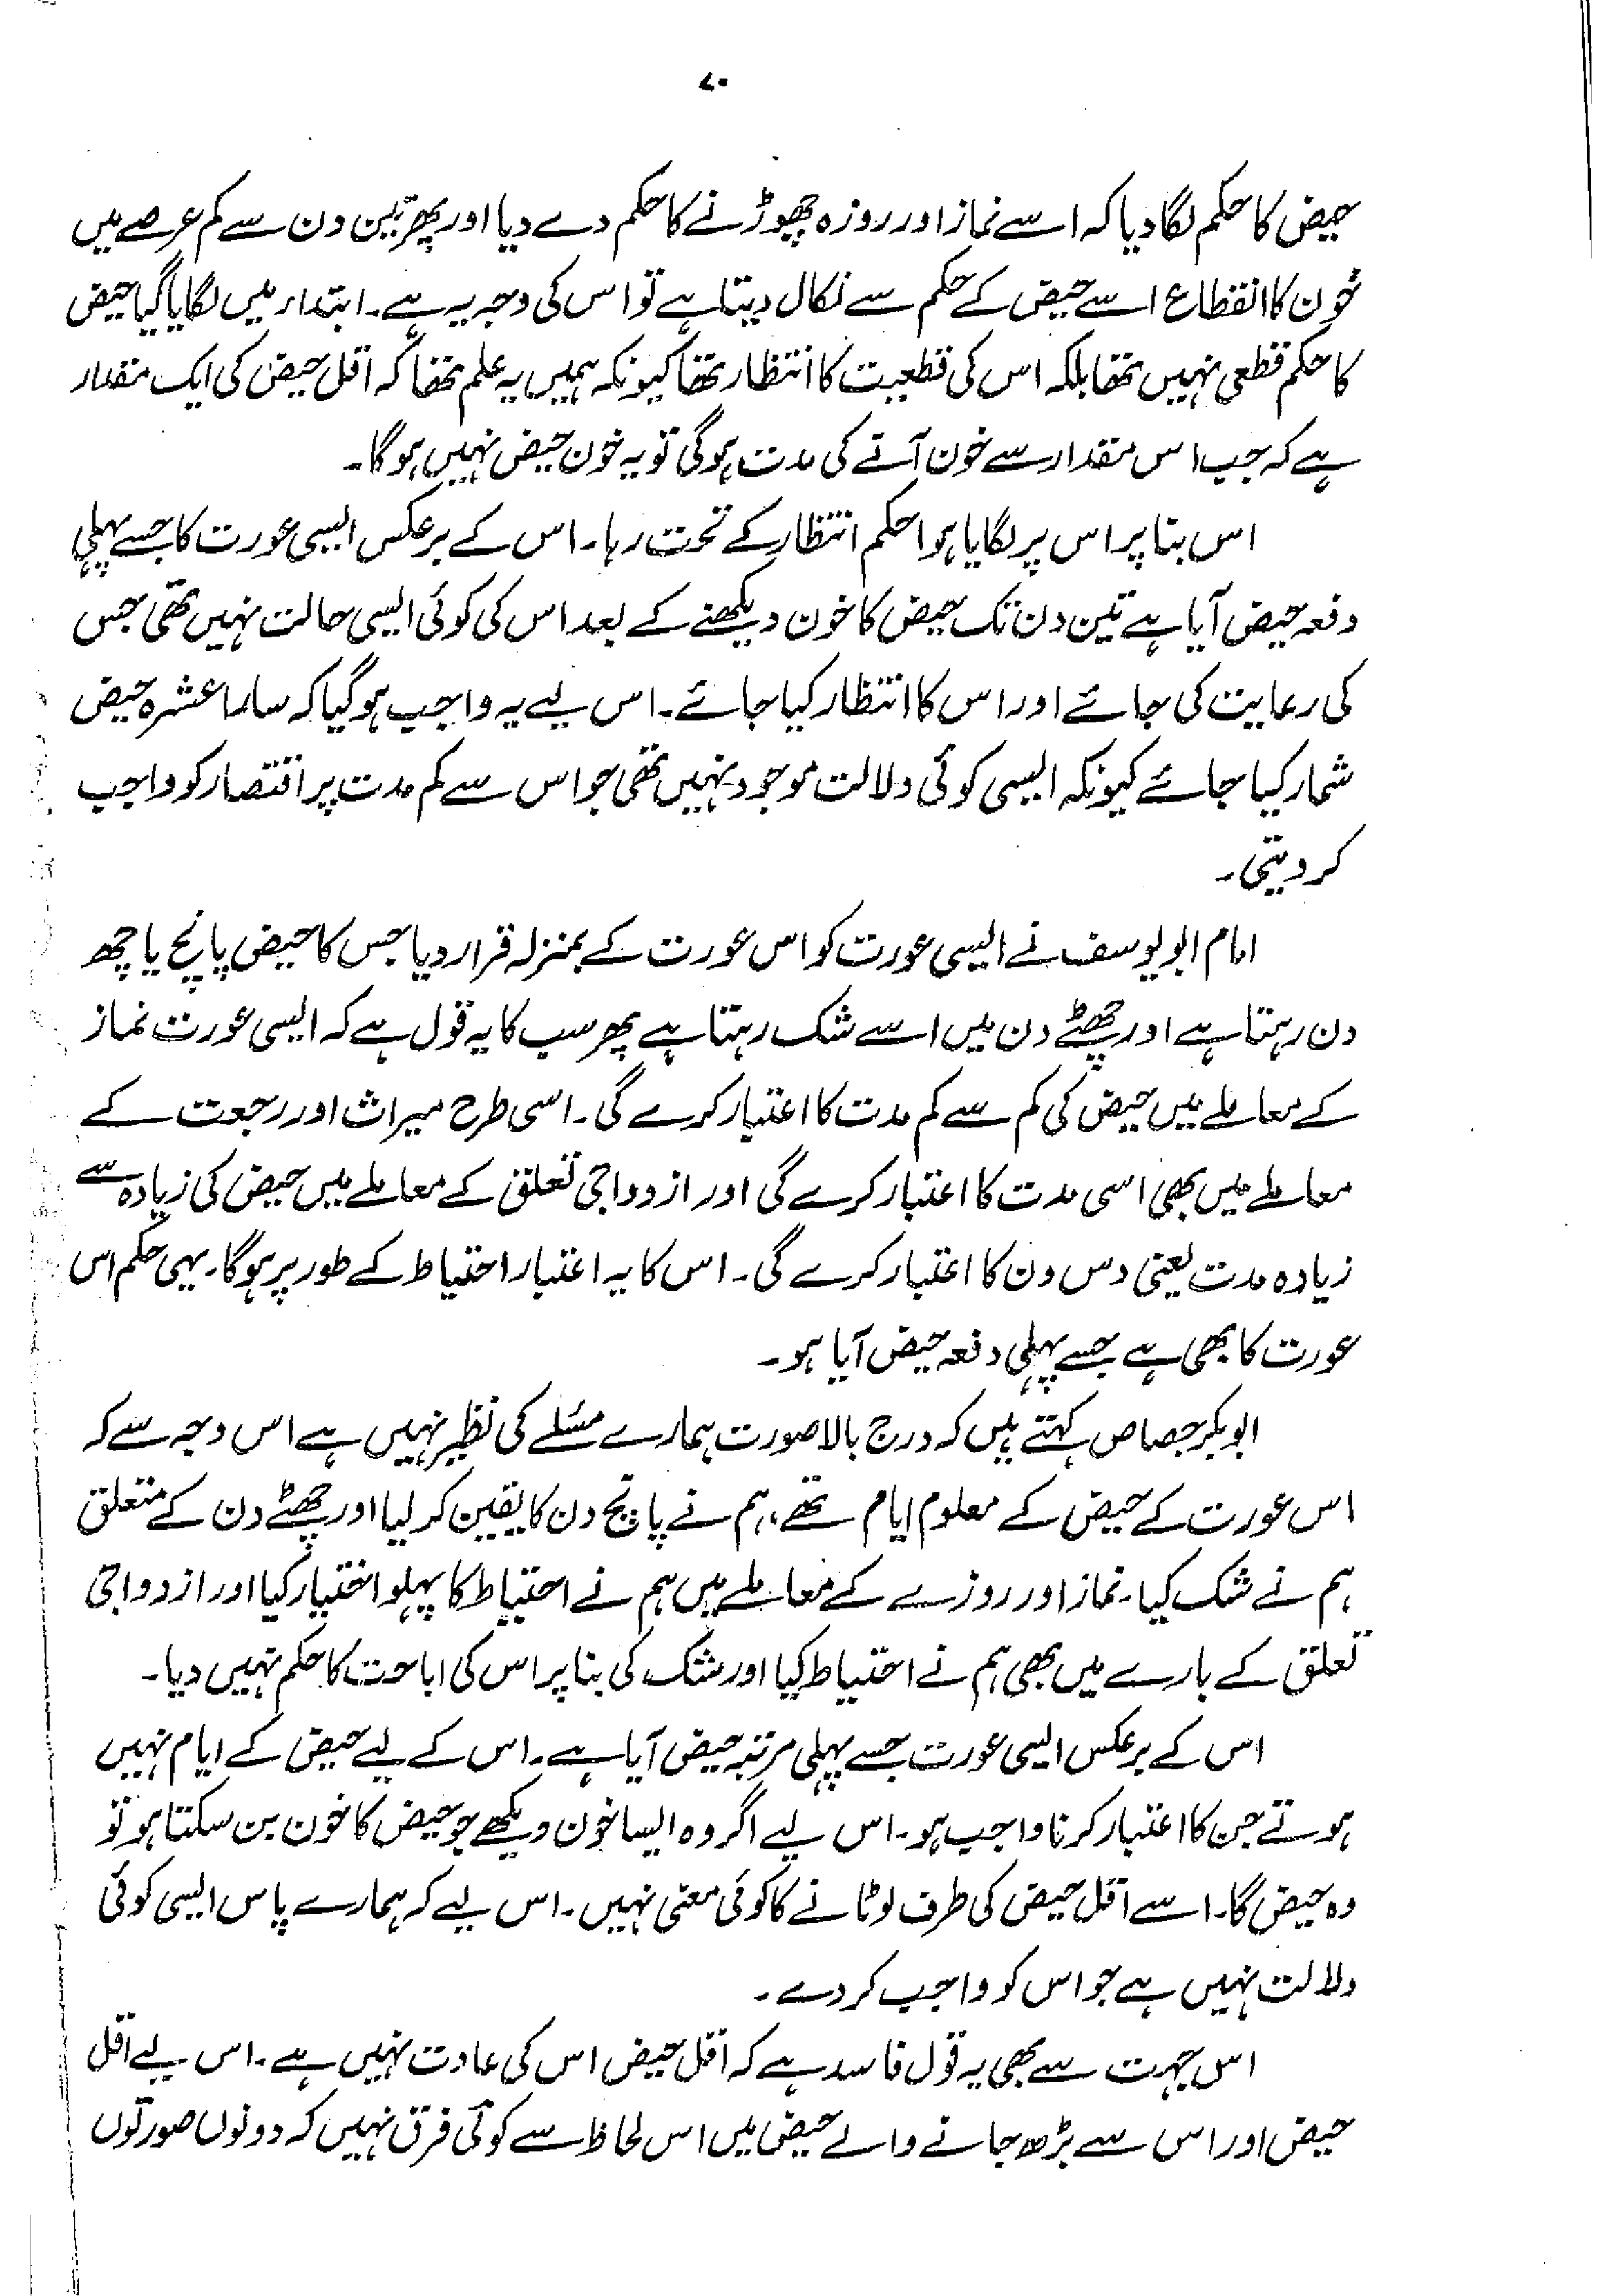 ۷۰
حیض کا حکم لگا دیا کہ اسے نماز اور روزہ چھوڑنے کا حکم دے دیا اور پھر تین دن سے کم عرصے میں
خون کا انقطاع اسے حیض کے حکم سے نکال دیتا ہے تو اس کی وجہ یہ ہے۔ ابتداء میں لگایا گیا حیض
کا حکم قطعی نہیں تھا بلکہ اس کی قطعیت کا انتظار تھا کیونکہ ہمیں یہ علم تھا کہ اقل حیض کی ایک مقدار
ہے کہ جب اس مقدار سے خون آنے کی مدت ہوگی تو یہ خون حیض نہیں ہوگا۔
اس بنا پر اس پر لگایا ہوا حکم انتظار کے تحت رہا۔ اس کے برعکس ایسی عورت کا جسے پہلی
دفعہ حیض آیا ہے تین دن تک حیض کا خون دیکھنے کے بعد اس کی کوئی ایسی حالت نہیں تھی جس
کی رعایت کی جائے اور اس کا انتظار کیا جائے۔ اس لیے یہ واجب ہوگیا کہ سارا عشرہ حیض
شمار کیا جائے کیونکہ ایسی کوئی دلالت موجود نہیں تھی جو اس سے کم مدت پر اقتصار کو واجب
کر دیتی۔
امام ابو یوسف نے ایسی عورت کو اس عورت کے بمنزلہ قرار دیا جس کا حیض پانچ یا چھ
دن رہتا ہے اور چھٹے دن میں اسے شک رہتا ہے پھر سب کا یہ قول ہے کہ ایسی عورت نماز
کے معاملے میں حیض کی کم سے کم مدت کا اعتبار کرے گی۔ اسی طرح میراث اور رجعت کے
معاملے میں بھی اسی مدت کا اعتبار کرے گی اور ازدواجی تعلق کے معاملے میں حیض کی زیادہ سے
زیادہ مدت یعنی دس دن کا اعتبار کرے گی۔ اس کا یہ اعتبار احتیاط کے طور پر ہوگا۔ یہی حکم اس
عورت کا بھی ہے جسے پہلی دفعہ حیض آیا ہو۔
ابوبکر جصاص کہتے ہیں کہ درج بالا صورت ہمارے مسئلے کی نظیر نہیں ہے اس وجہ سے کہ
اس عورت کے حیض کے معلوم ایام تھے، ہم نے پانچ دن کا یقین کر لیا اور چھٹے دن کے متعلق
ہم نے شک کیا۔ نماز اور روزے کے معاملے میں ہم نے احتیاط کا پہلو اختیار کیا اور ازدواجی
تعلق کے بارے میں بھی ہم نے احتیاط کیا اور شک کی بنا پر اس کی اباحت کا حکم نہیں دیا۔
اس کے برعکس ایسی عورت جسے پہلی مرتبہ حیض آیا ہے۔ اس کے لیے حیض کے ایام نہیں
ہوتے جن کا اعتبار کرنا واجب ہو۔ اس لیے اگر وہ ایسا خون دیکھے جو حیض کا خون بن سکتا ہو تو
وہ حیض گا۔ اسے اقل حیض کی طرف لوٹانے کا کوئی معنی نہیں۔ اس لیے کہ ہمارے پاس ایسی کوئی
دلالت نہیں ہے جو اس کو واجب کر دے۔
اس جہت سے بھی یہ قول فاسد ہے کہ اقل حیض اس کی عادت نہیں ہے۔ اس لیے اقل
حیض اور اس سے بڑھ جانے والے حیض میں اس لحاظ سے کوئی فرق نہیں کہ دونوں صورتوں